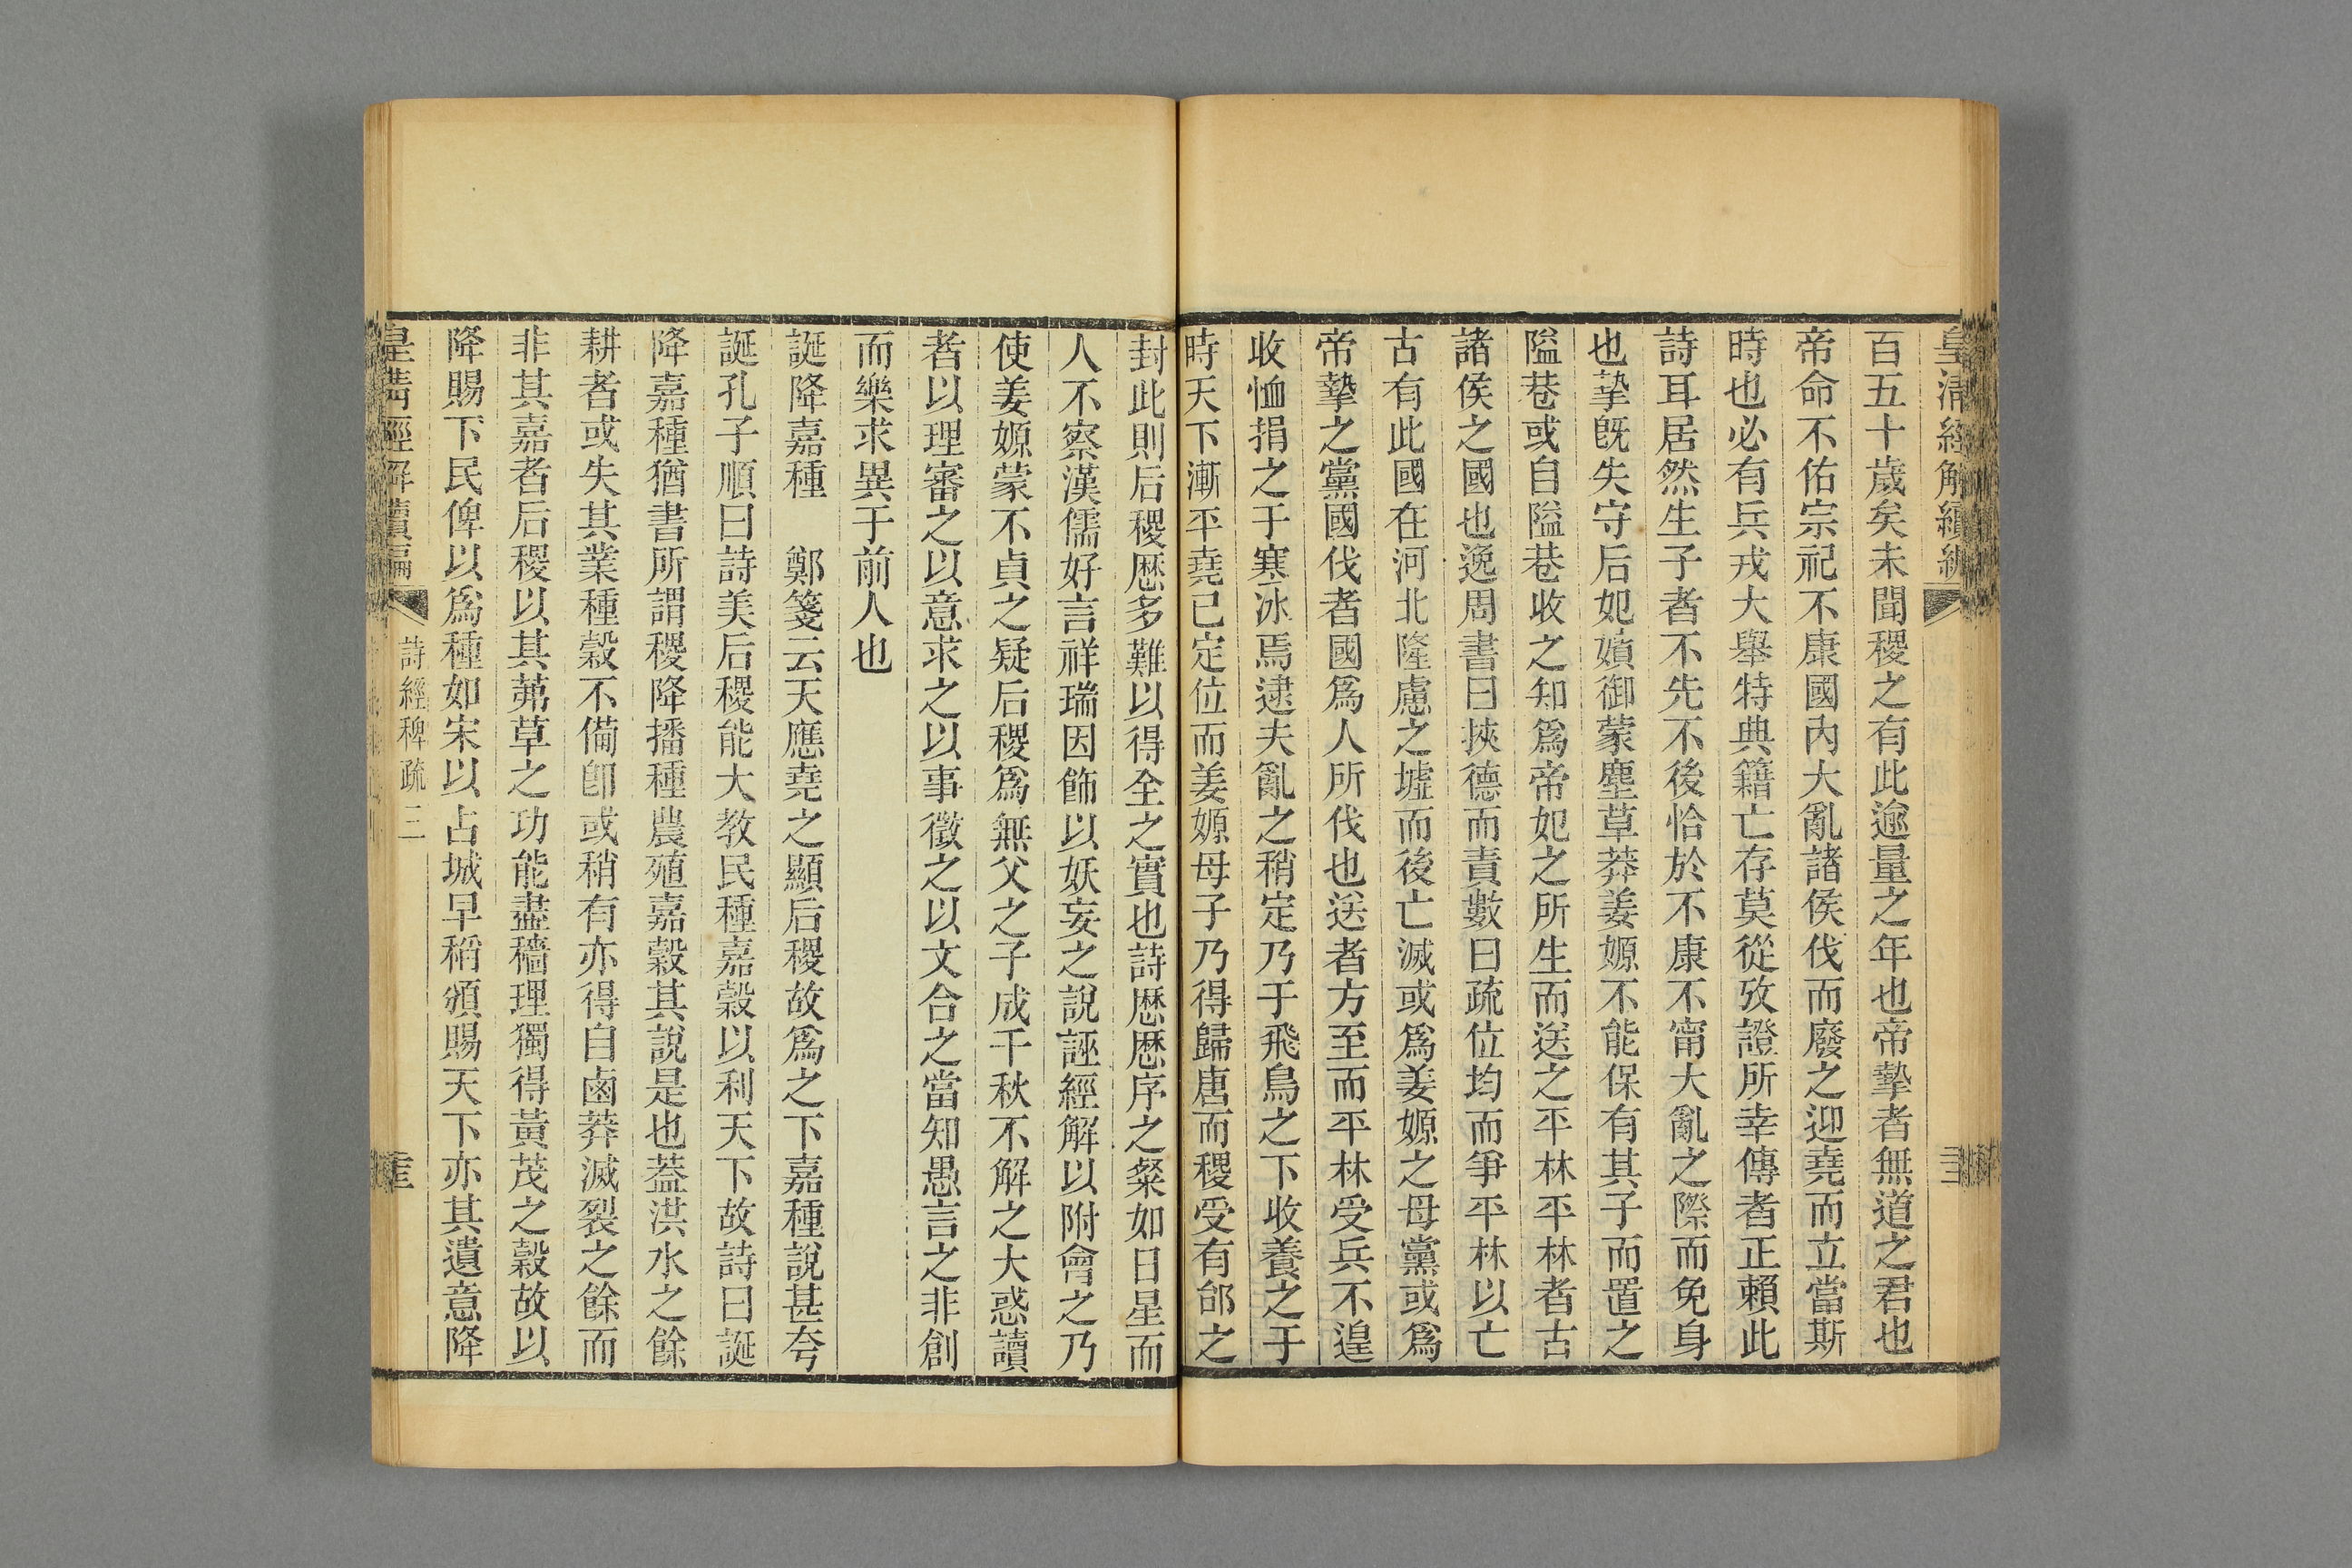 皇清經解續編
百五十歲矣未聞稷之有此逾量之年也帝摯者無道之君也
帝命不佑宗祀不康國內大亂諸侯伐而廢之迎堯而立當斯
時也必有兵戎大舉特典籍亡存莫從攷證所幸傳者正賴此
詩耳居然生子者不先不後恰於不康不甯大亂之際而免身
也摯既失守后妃嬪御蒙塵草莽姜嫄不能保有其子而置之
隘巷或自隘巷收之知爲帝妃之所生而送之平林平林者古
諸侯之國也逸周書曰挾德而責數曰疏位均而爭平林以亡
古有此國在河北隆慮之墟而後亡滅或爲姜嫄之母黨或爲
帝摯之黨國伐者國爲人所伐也送者方至而平林受兵不遑
收恤捐之于寒冰焉逮夫亂之稍定乃于飛鳥之下收養之于
時天下漸平堯已定位而姜嫄母子乃得歸唐而稷受有邰之
封此則后稷厯多難以得全之實也詩厯厯序之粲如日星而
人不察漢儒好言祥瑞因飾以妖妄之說誣經解以附會之乃
使姜嫄蒙不貞之疑后稷爲無父之子成千秋不解之大惑讀
者以理審之以意求之以事徵之以文合之當知愚言之非創
而樂求異于前人也
誕降嘉種　鄭箋云天應堯之顯后稷故爲之下嘉種說甚夸
誕孔子順曰詩美后稷能大教民種嘉穀以利天下故詩曰誕
降嘉種猶書所謂稷降播種農殖嘉穀其說是也蓋洪水之餘
耕者或失其業種穀不備卽或稍有亦得自鹵莽滅裂之餘而
非其嘉者后稷以其茀草之功能盡穡理獨得黃茂之穀故以
降賜下民俾以爲種如宋以占城早稻頒賜天下亦其遺意降
皇清經解續編
詩經稗疏三